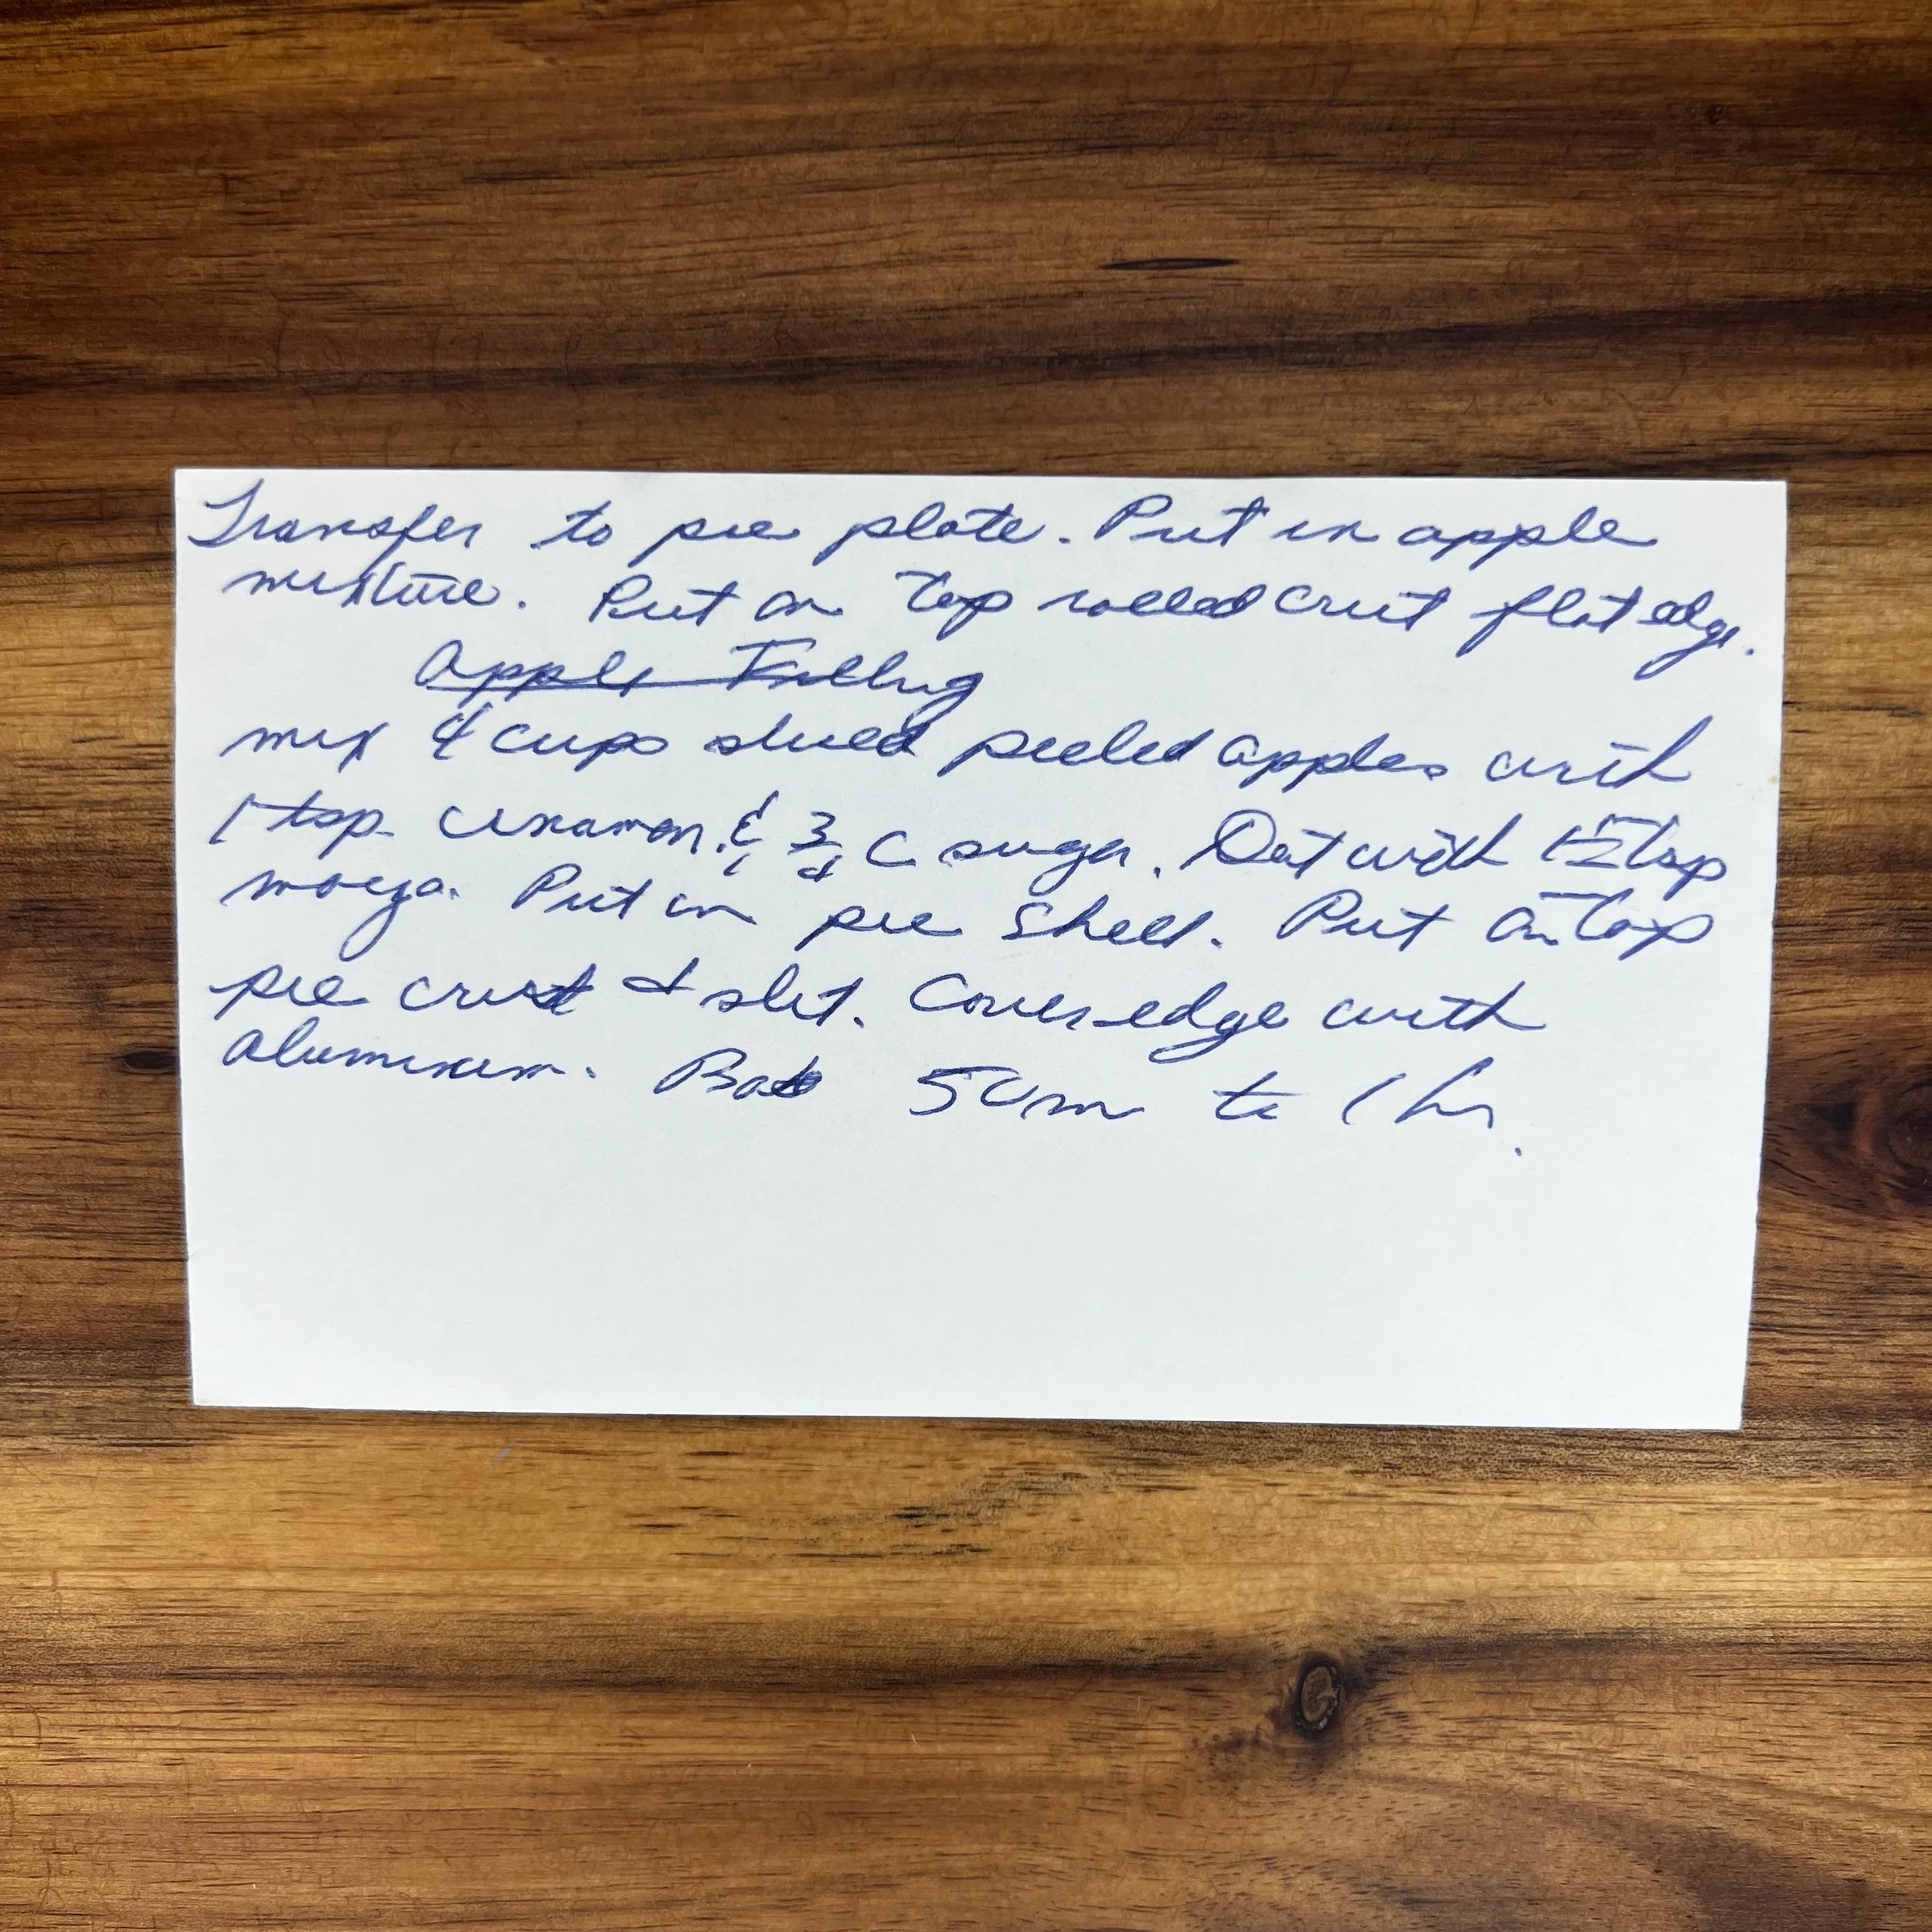 Transfer to pie plate. Put in apple
mixture. Put on top rolled crust flat edge.
Apple Filling
mix 4 cups sliced peeled apples with
1 tsp cinamon & 3/4 C sugar. Dot with tsp
marga. Put in pie shell. Put on top
pie crust & slit. Cover edge with
Aluminum. Bake 50m to 1 hr.